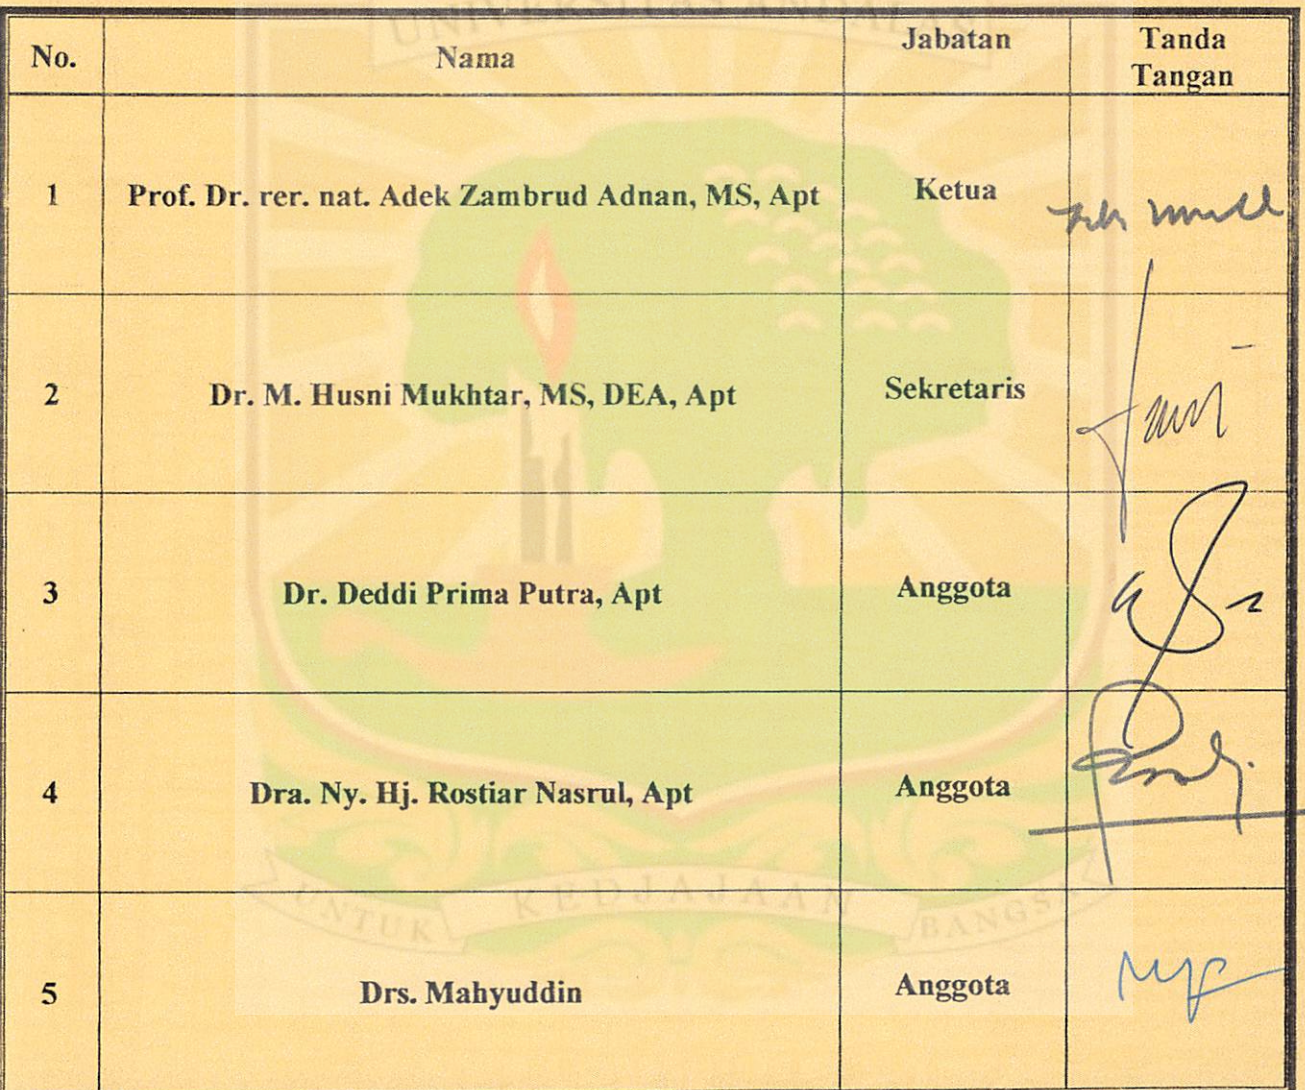 UNIVERSITAS ANDALAS
No. Nama Jabatan Tanda
Tangan
1 Prof. Dr. rer. nat. Adek Zambrud Adnan, MS, Apt Ketua
2 Dr. M. Husni Mukhtar, MS, DEA, Apt Sekretaris
3 Dr. Deddi Prima Putra, Apt Anggota
4 Dra. Ny. Hj. Rostiar Nasrul, Apt Anggota
UNTUK KEDJAJAAN BANGSA
5 Drs. Mahyuddin Anggota